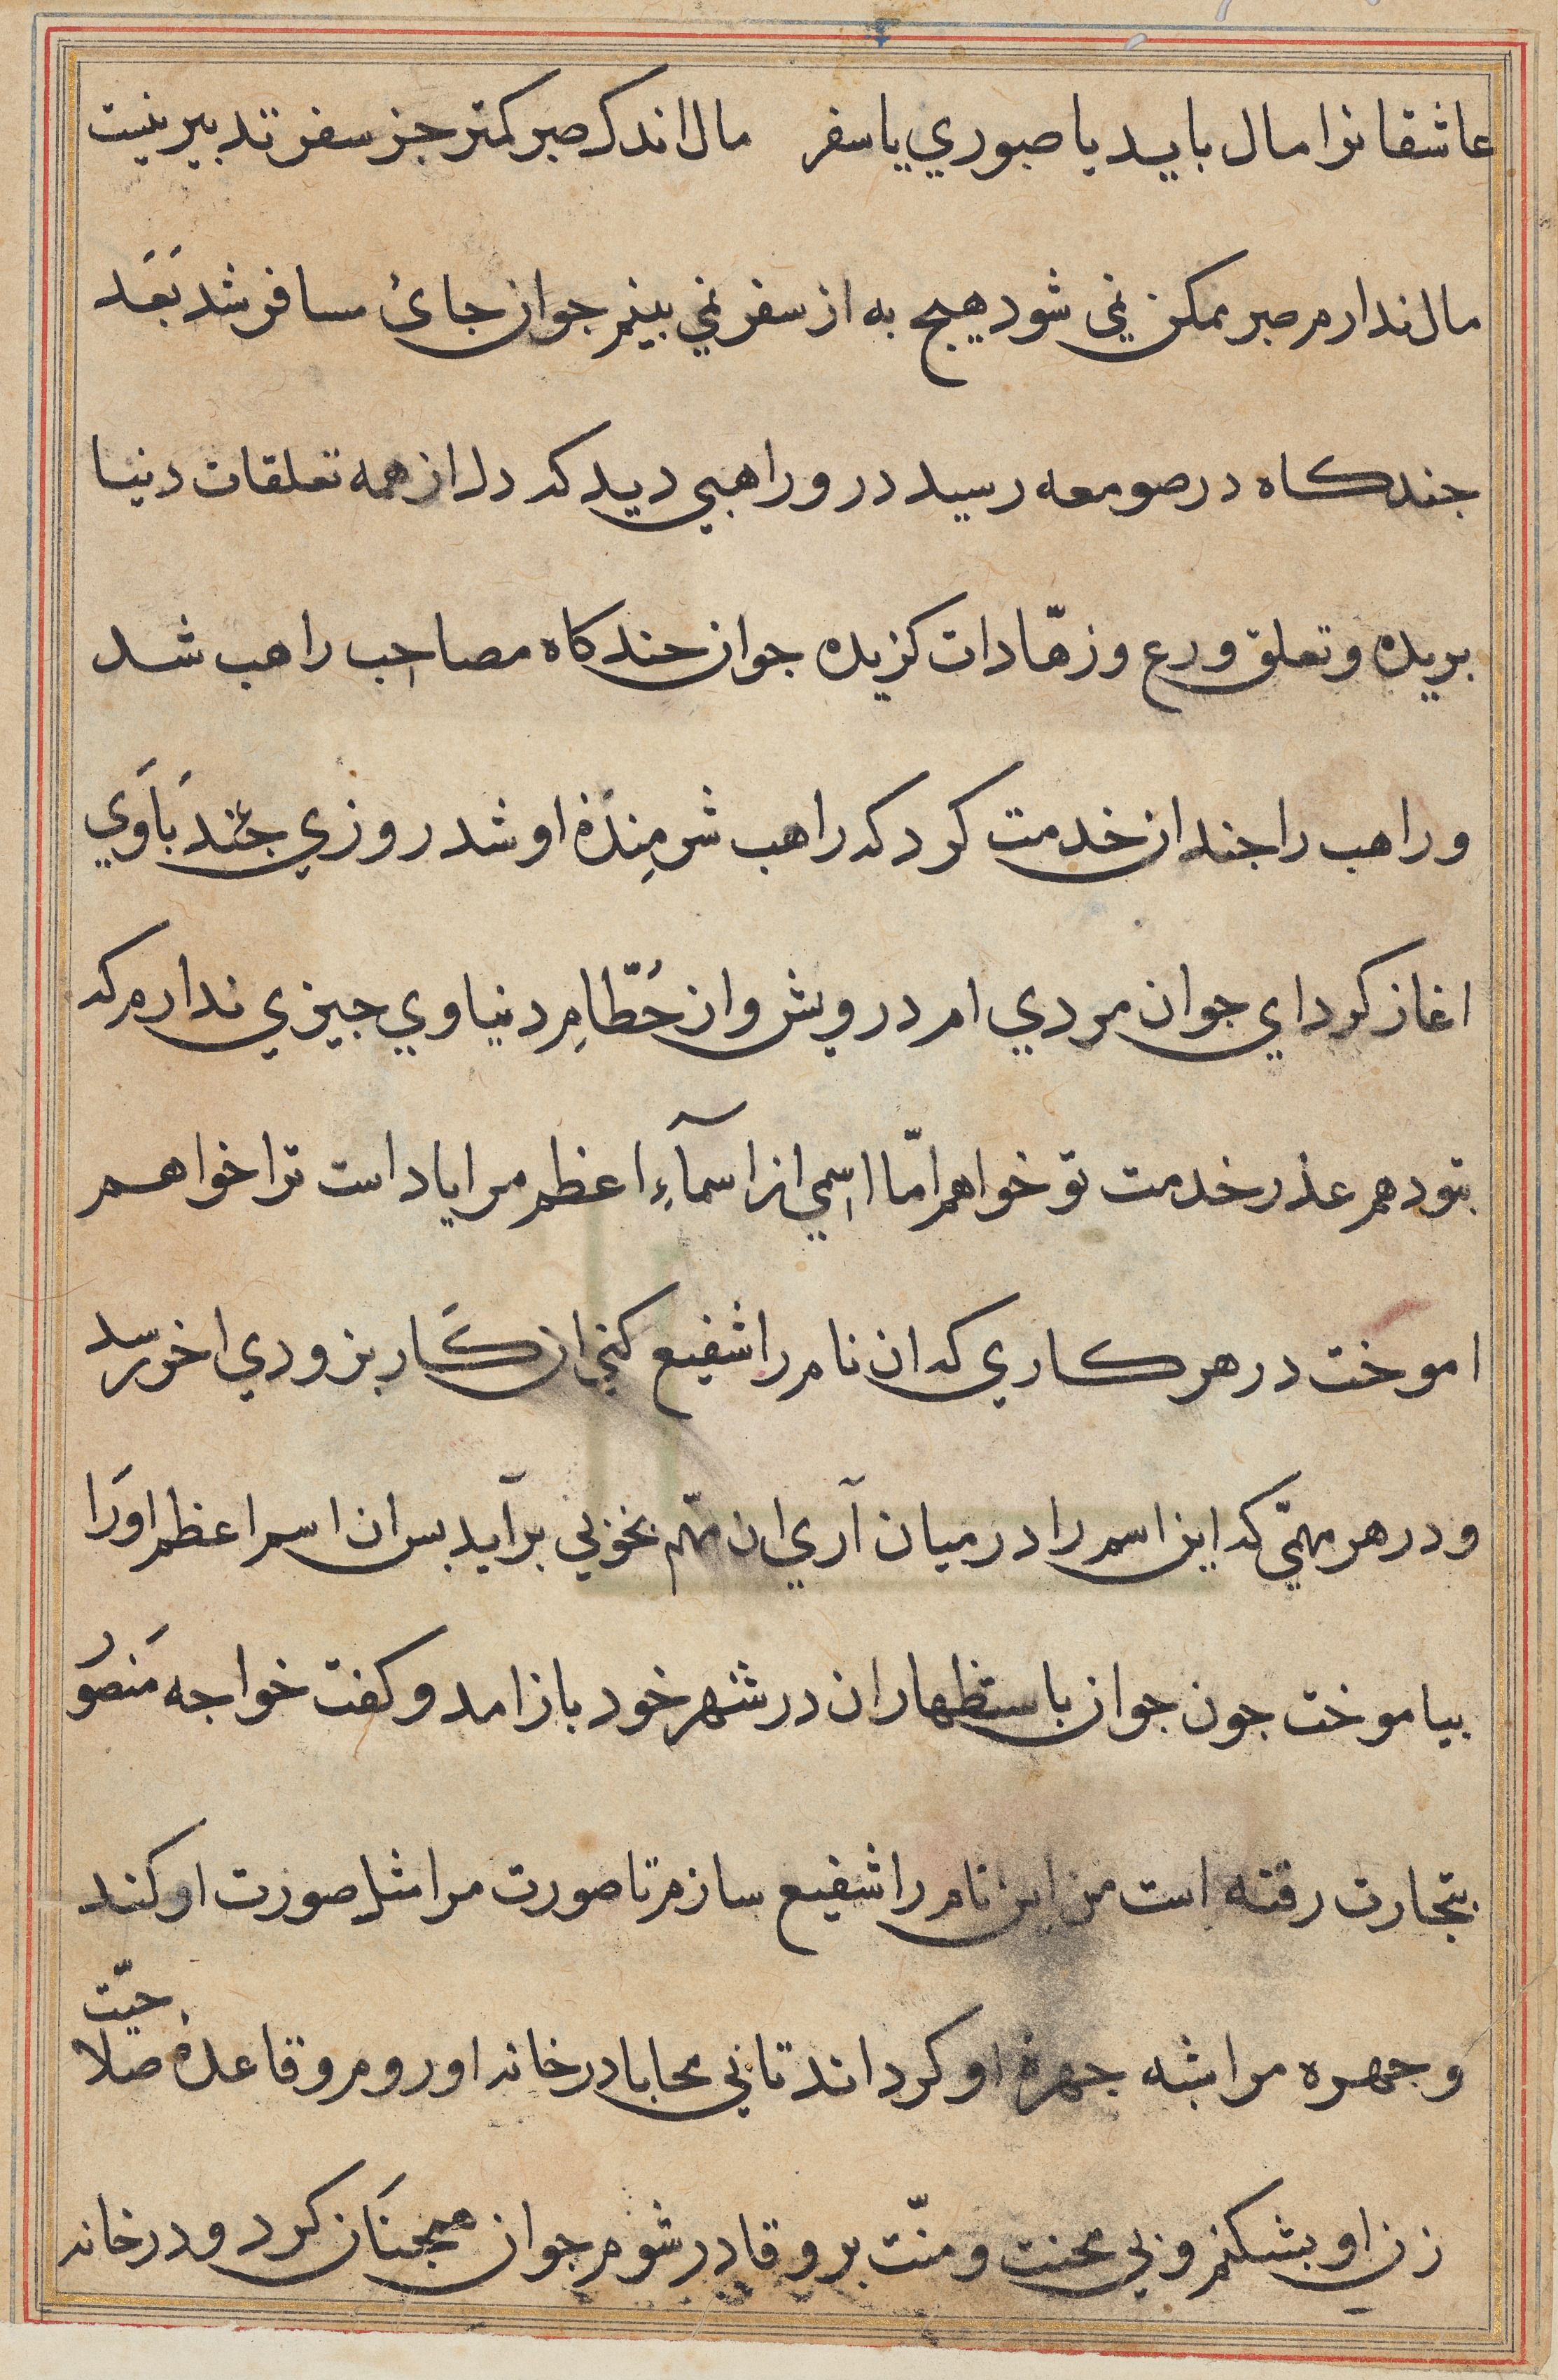 عاشقانرا مال بايد يا صبوري يا سفر مال اندك صبر كمتر جز سفر تدبير نيست
مال ندارم صبر ممكن ني شود هيچ به از سفر ني بينم جوان جائ مسافر شد بَعَد
جندكاه در صومعه رسيد در و راهبي ديد كه دل از همه تعلقات دنيا
بريده و تعلق ورع و زهّادات كزيده جوان جندكاه مصاحب راهب شد
و راهب را جندان خدمت كرد كه راهب شرمِندَهٔ او شد روزي جند بَاوَي
اغاز كرد اي جوان مردي ام درويش و از حُطّامِ دنياوي جيزي ندارم كه
بتو دهم عذر خدمت تو خواهم امّا اسِمي از اسمآءِ اعظم مرا ياد است ترا خواهم
اموخت در هر كاري كه ان نام را شفيع كني ان كَار بزودي اخر رسد
و در هر مهمّي كه اين اسم را در ميان آري ان مهّم بخوبي برآيد بس ان اسم اعظم اورَا
بياموخت جون جوان باستظهار ان در شهر خود باز امد و كفت خواجه مَنصُور
بتجارت رفته است من اين نام را شفيع سازم تا صورت مرا مثل صورت او كند
و جهره مرا شبه جهرهٔ او كرداند تا بي محابا در خانه او روم و قاعدهٔ صلاحيّت
زن او بشكنم و بي محنت و منّت برو قادر شوم جوان همجنَان كرد و در خانه